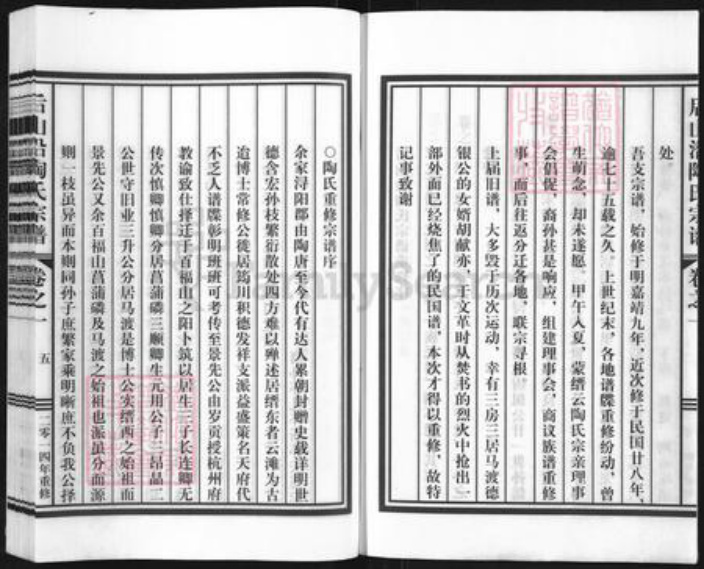 处
吾支宗谱，始修于明嘉靖九年，近次修于民国廿八年，
逾七十五载之久，上世纪末，各地谱牒重修纷动，曾
生萌念，却未遂愿，甲午入夏，蒙缙云陶氏宗亲理事
会倡促，裔孙甚是响应，组建理事会，商议族谱重修
事，而后往返分迁各地，联宗寻根，
上届旧谱，大多毁于历次运动，幸有三房三居马渡德
银公的女婿胡献亦，于文革时从焚书的烈火中抢出一
部外面已经烧焦了的民国谱，本次才得以重修，故特
记事致谢
〇陶氏重修宗谱序
余家浔阳郡由陶唐至今代有达人累朝封赠史载详明世
德含宏孙枝繁衍散处四方难以殚述居缙东者云滩为古
迨博士常修公徙居筠川积德发祥支派益盛策名天府代
不乏人谱牒彰明班班可考传至景先公由岁贡授杭州府
教谕致仕择迁于百福山之阳卜筑以居生三子长连卿无
传次慎卿慎卿分居菖蒲磷三顺卿生元用公子三昂品二
公世守旧业三升公分居马渡是博士公实缙西之始祖而
景先公又余百福山菖蒲磷及马渡之始祖也派虽分而源
则一枝虽异而本则同孙子庶繁家乘明晰庶不负我公择
后山沿陶氏宗谱
卷之一
五
二〇一四年重修
后山沿陶氏宗谱
卷之一
FamilySearch